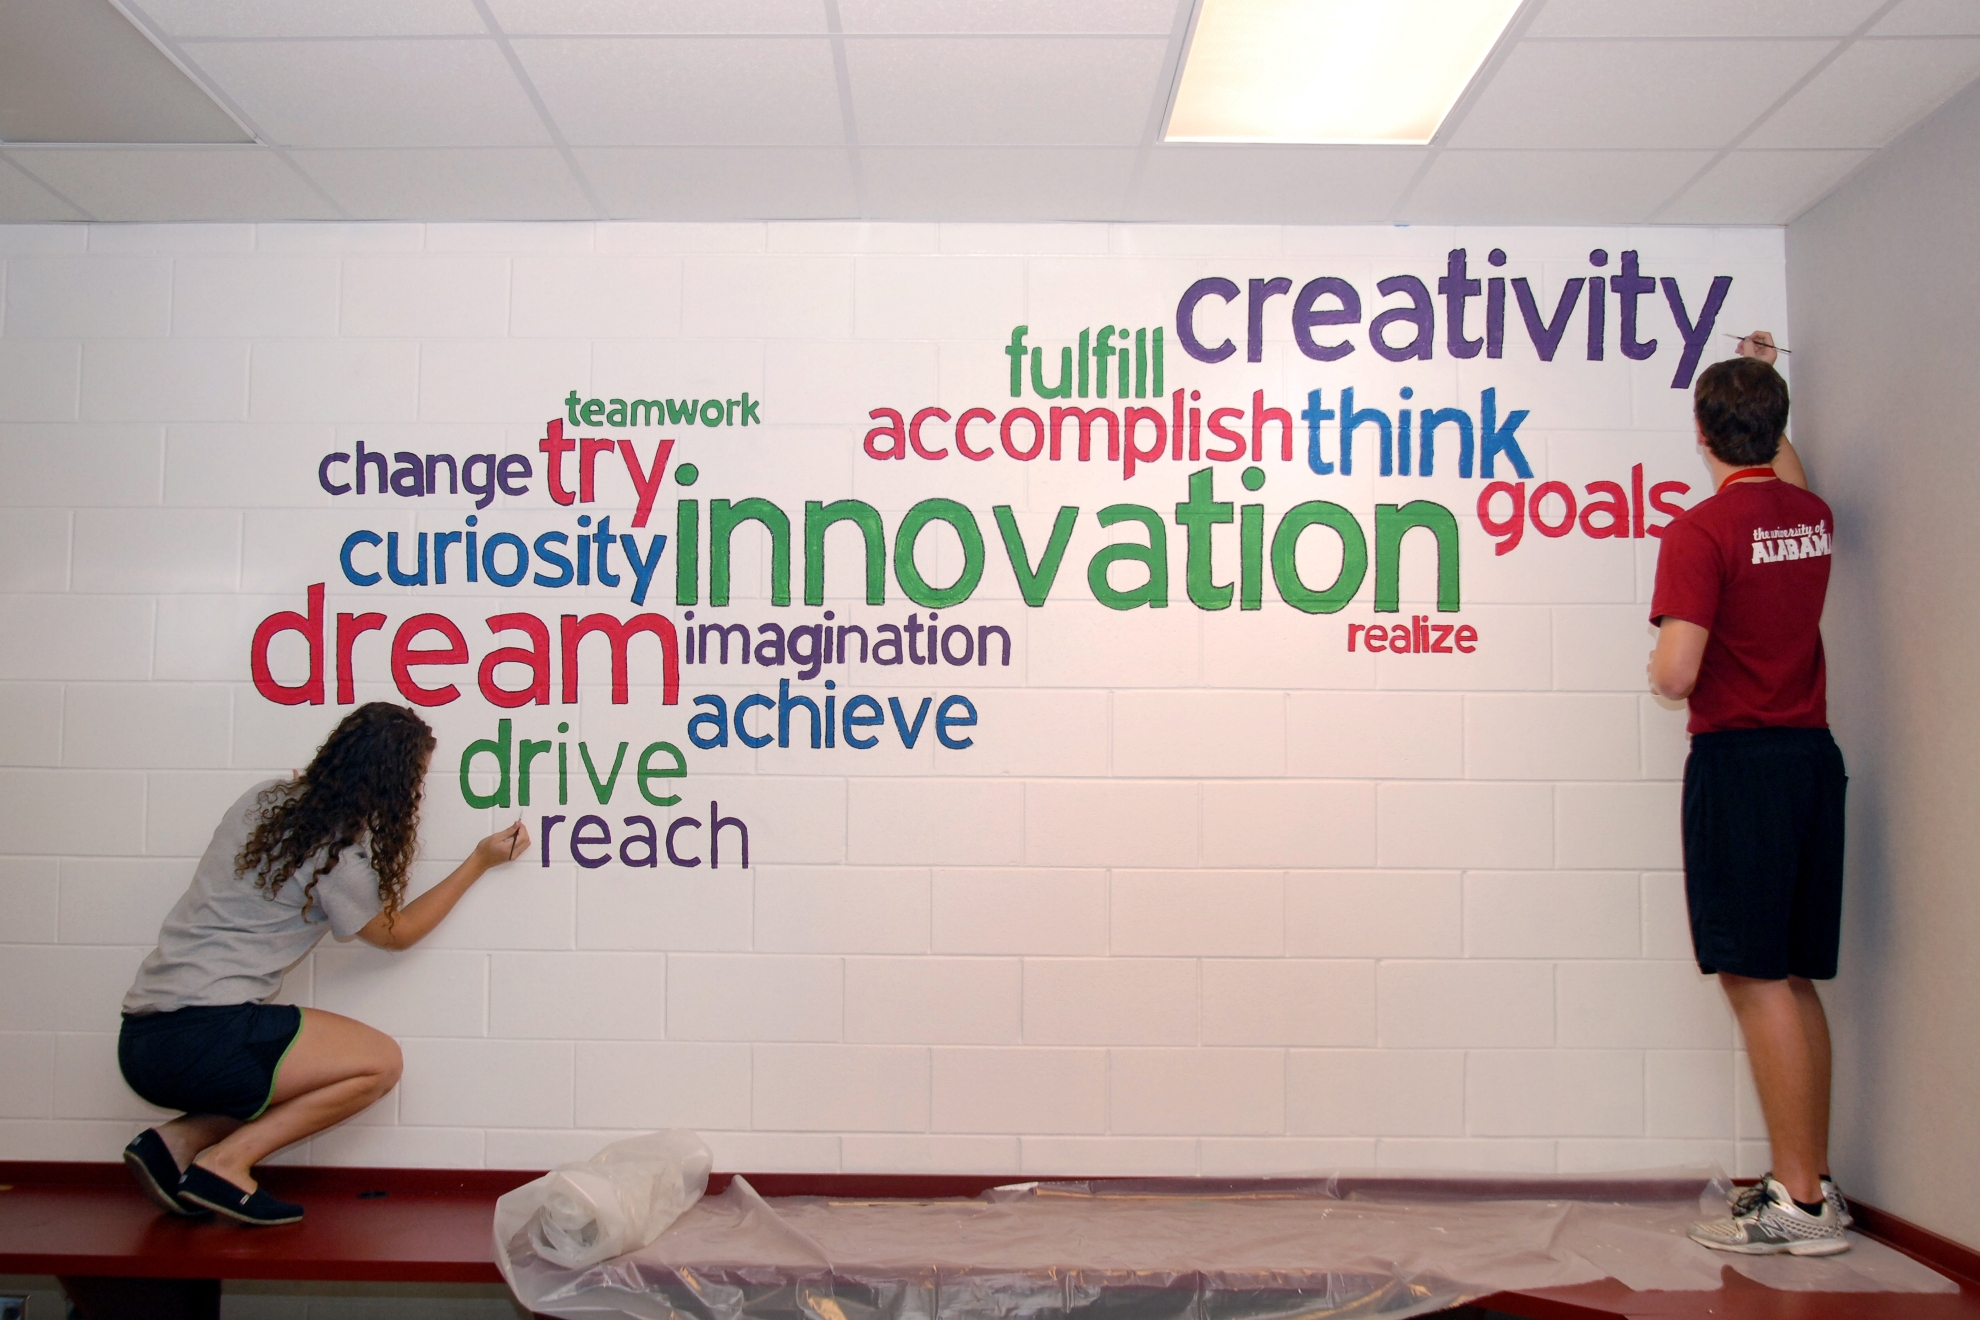 creativity
fulfill
teamwork
accomplish think
change try
goals
innovation
curiosity
dream imagination
realize
achieve
drive
reach
the university of
ALABAMA